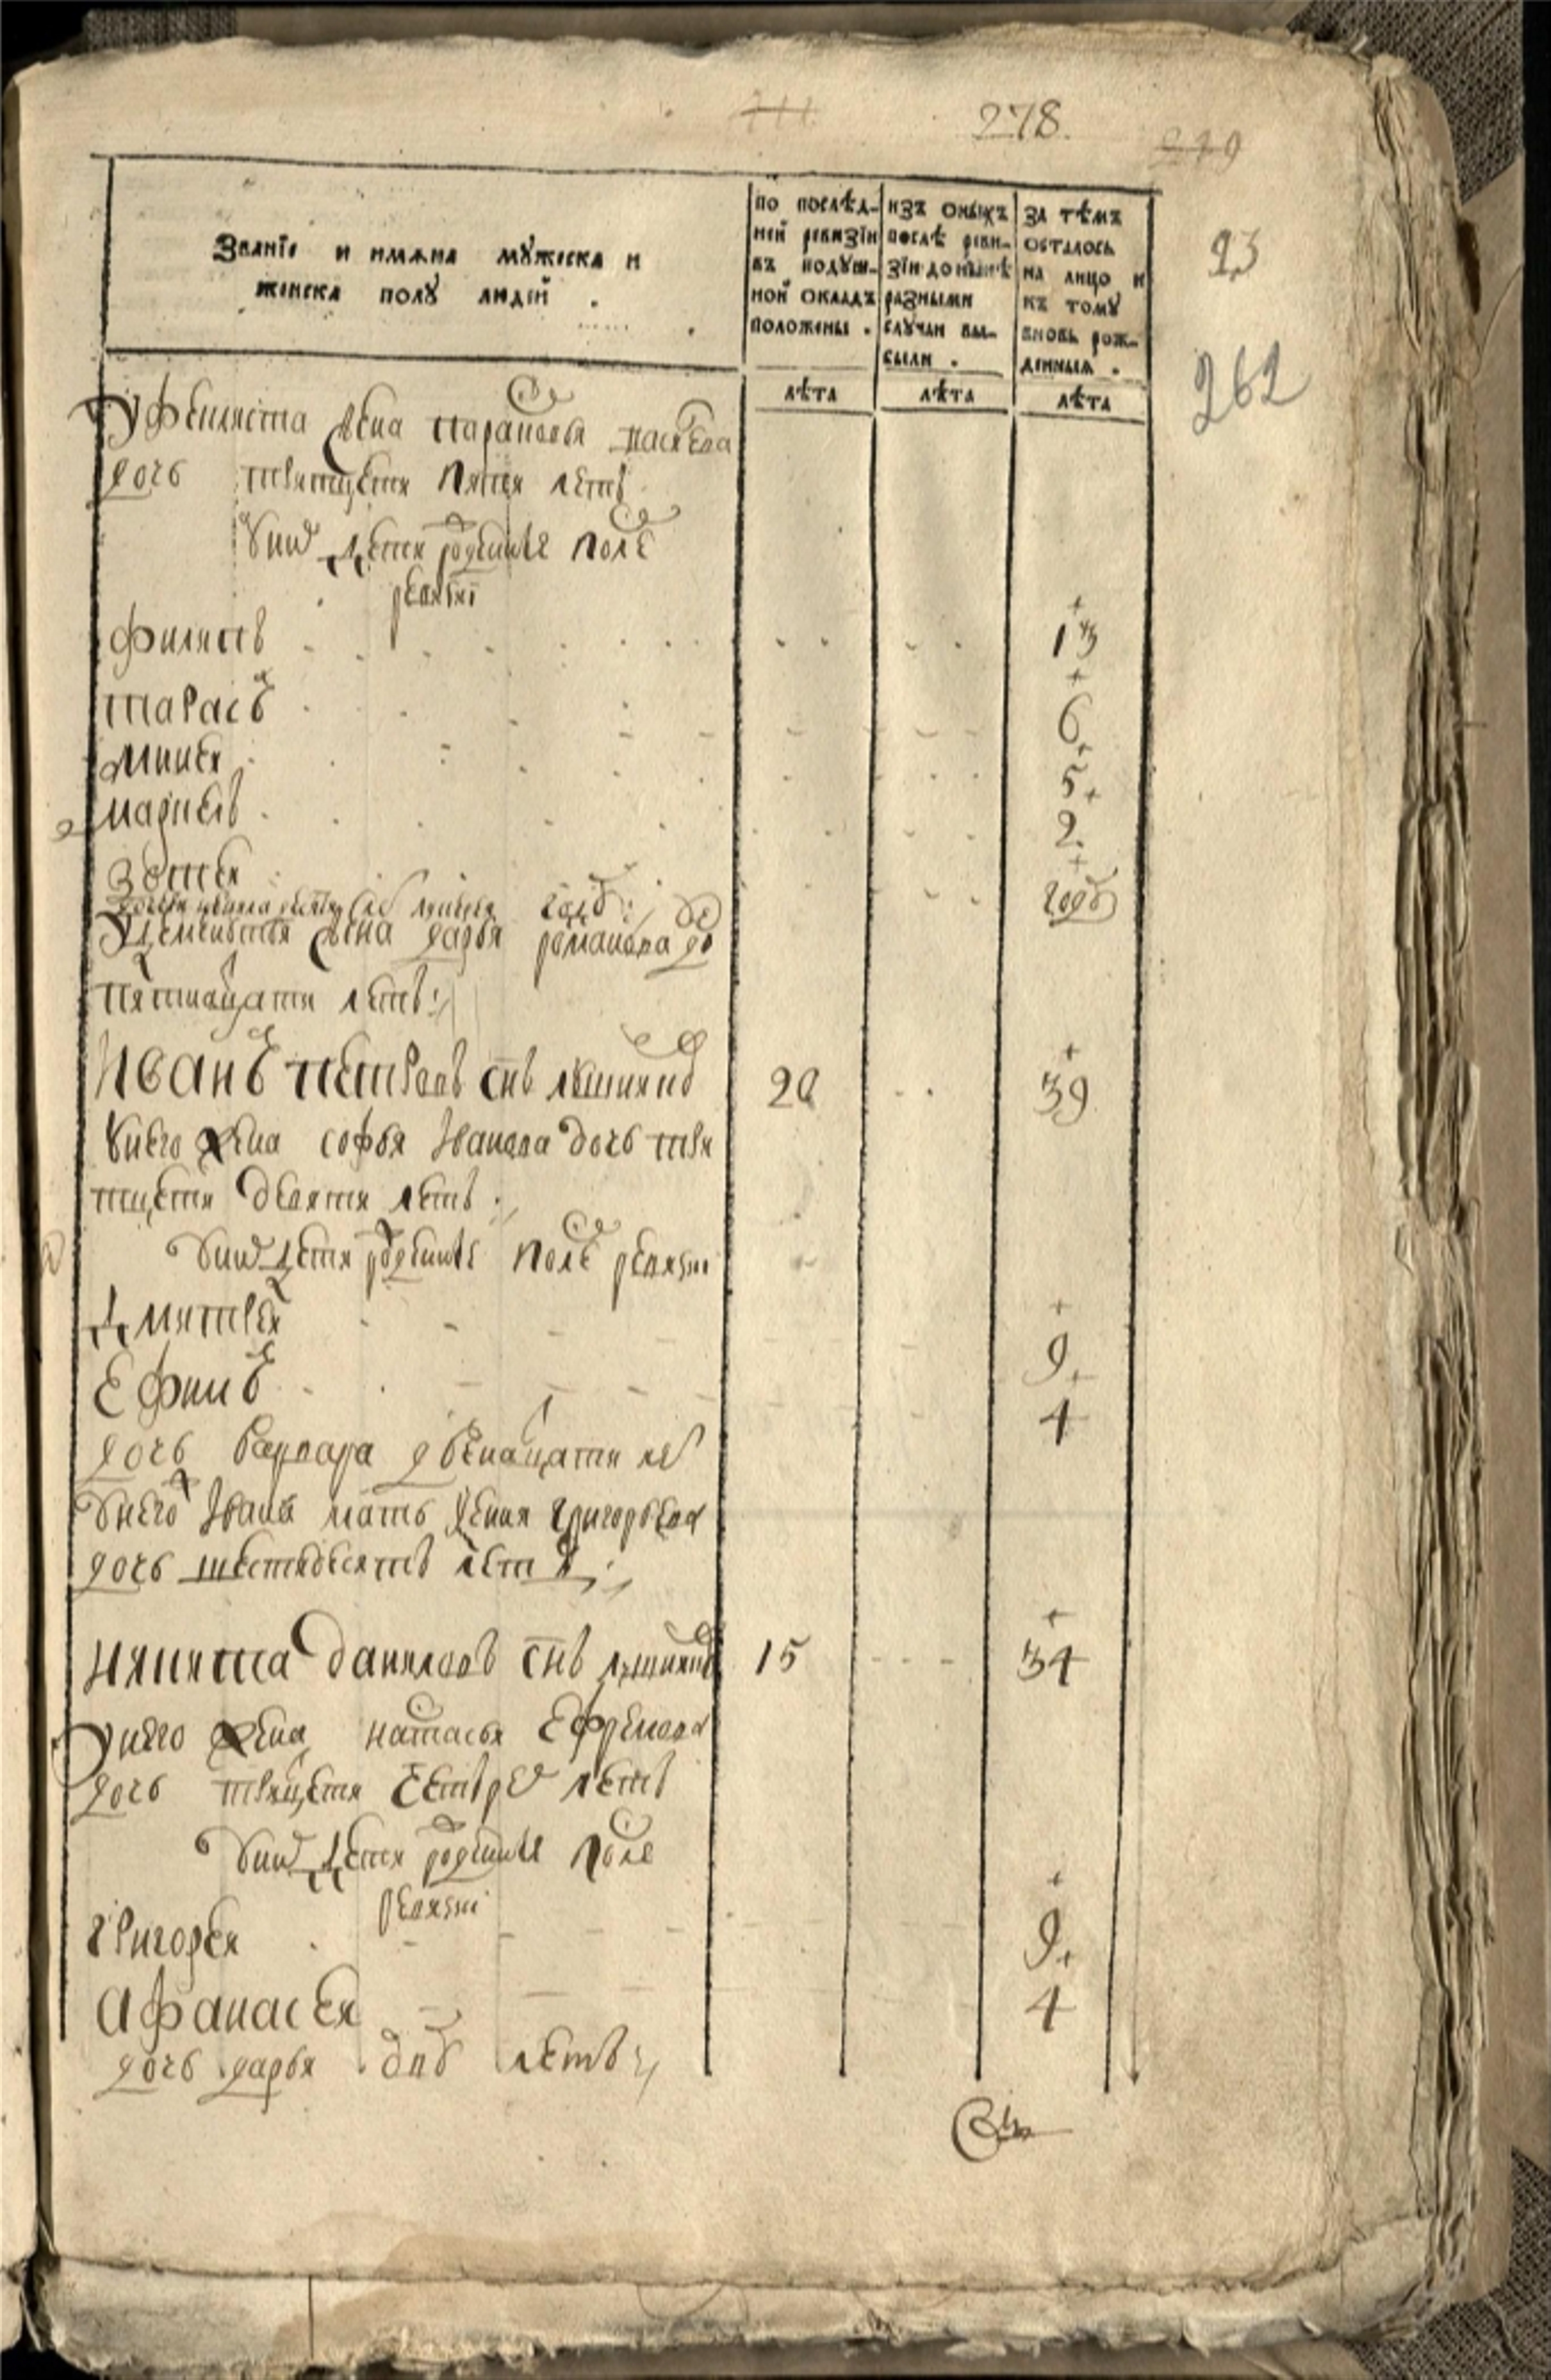 278.
23
262
Званїе и имѧна мꙋжеска и
женска полꙋ людей .
по послѣд-
ней ревизїи
въ подꙋш-
ной окладъ
положены .
изъ оныхъ
послѣ реви-
зїи до нынѣ
разными
слꙋчаи вы-
были .
за тѣмъ
осталось
на лицо и
къ томꙋ
вновь рож-
денныѧ .
лѣта
лѣта
лѣта
жена парасковья
дочь тритцети пяти летъ
унихъ дети рожденные после
ревизи
филипъ 13
тарасъ 6
5
2
зотеи годъ
жена дарья романова до
пятнадцати летъ
Иванъ петровъ снъ 20 39
унего жена софья Iванова дочь три
тцети девяти летъ
унихъ дети рожденные после ревизи
Дмитреи 9
Ефимъ 4
дочь варвара двенадцати ле
унего Iвана мать Григорьева
дочь шестидесятъ летъ
никита даниловъ снъ 15 34
унего жена настасья Ефремова
дочь трицети четыре летъ
унихъ дети рожденные после
ревизи
Григореи 9
афанасеи 4
дочь дарья двѹ летъ